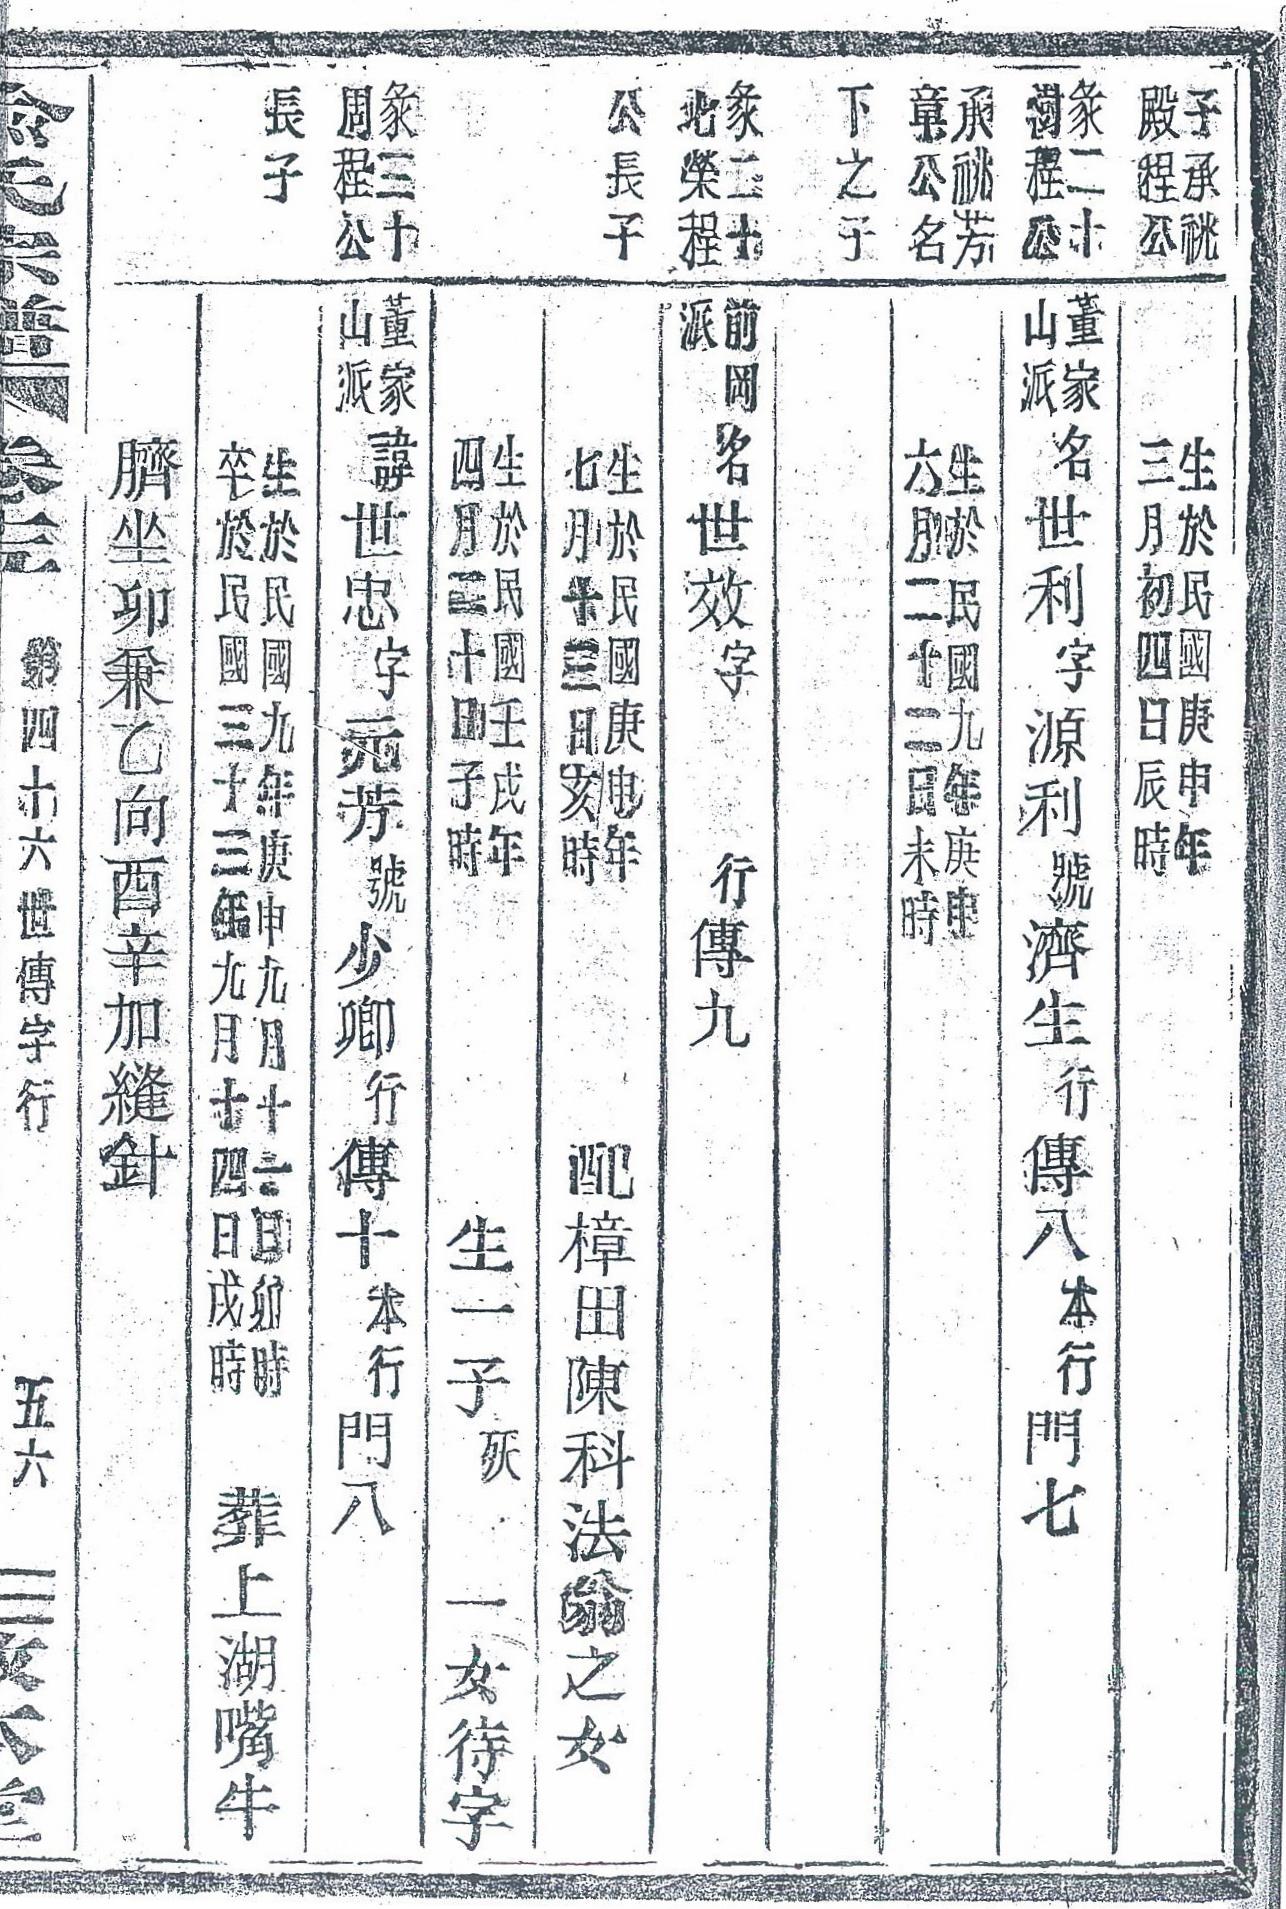 子承祧
殿程公
生於民國庚申年
三月初四日辰時
彖二十
澍程公
承祧芳
章公名
下之子
董家
山派
名世利字源利號濟生行傳八本行門七
生於民國九年庚申
六月二十二日未時
彖二十
北榮程
公長子
前岡
派
名世效字 行傳九
生於民國庚申年
七月十三日亥時
配樟田陳科法翁之女
生於民國壬戌年
四月三十日子時
生一子殀 一女待字
彖三十
周程公
長子
董家
山派
諱世忠字元芳號少卿行傳十本行門八
生於民國九年庚申九月十二日卯時
卒於民國三十三年九月十四日戌時
葬上湖嘴牛
臍坐卯兼乙向酉辛加縫針
氏宗譜 卷三 第四十六世傳字行 五六 三